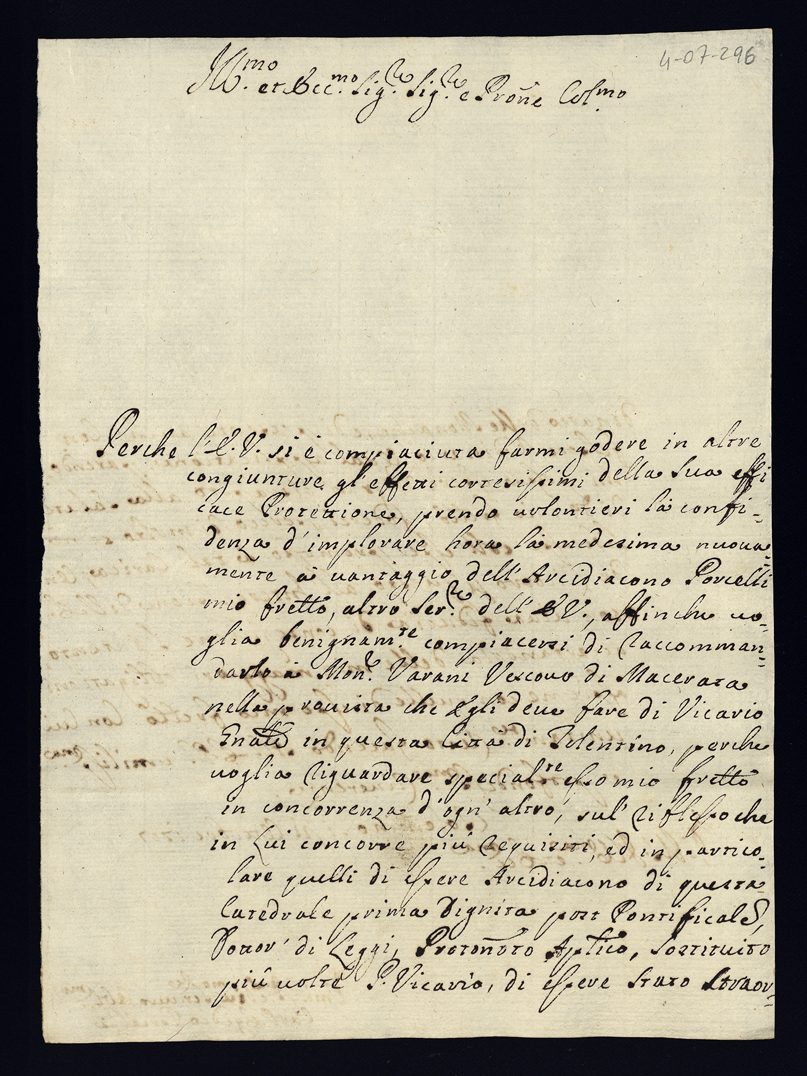 4-07-296
Ill.mo et Ecc.mo Sig.re Sig.re e Prōne Col.mo
Perche l'E.V. si è compiaciuta farmi godere in altre
congiunture gl'effetti cortesissimi della sua effi
cace Protettione, prendo volontieri la confi-
denza d'implorare hora la medesima nuova-
mente à vantaggio dell'Arcidiacono Porcelli
mio frello, altro Ser.re dell'EV., affinche vo-
glia benignam.te compiacersi di raccomman-
darlo à Mon.r Varani Vescovo di Macerata
nella provista che Egli deve fare di Vicario
Gnāle in questa Città di Tolentino, perche
voglia riguardare special.te esso mio frello
in concorrenza d'ogn'altro, sul riflesso che
in Lui concorre più requisiti, ed in partico-
lare quelli di essere Arcidiacono di questa
Catedrale prima Dignità post Pontificale,
Dottor' di Leggi, Protonōto Aplico, sostituito
più volte P. Vicario, di essere stato straor-